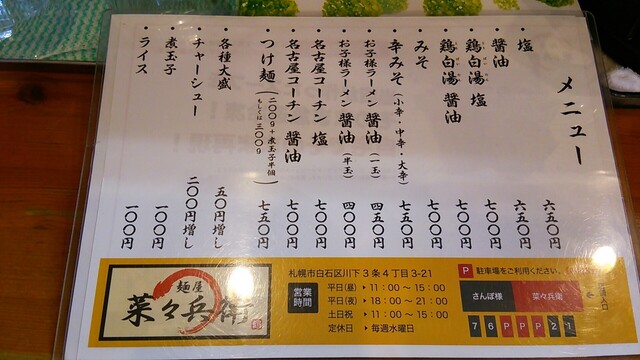 メニュー
・塩 六五〇円
・醤油 六五〇円
・鶏白湯 塩 七〇〇円
・鶏白湯 醤油 七〇〇円
・みそ 七〇〇円
・辛みそ(小辛・中辛・大辛) 七五〇円
・お子様ラーメン 醤油(一玉) 四五〇円
・お子様ラーメン 醤油(半玉) 四〇〇円
・名古屋コーチン 塩 七〇〇円
・名古屋コーチン 醤油 七〇〇円
・つけ麺(二〇〇g+煮玉子半個もしくは三〇〇g) 七五〇円
・各種大盛 五〇円増し
・チャーシュー 二〇〇円増し
・煮玉子 一〇〇円
・ライス 一〇〇円
麺屋
菜々兵衛
札幌市白石区川下3条4丁目3-21
営業時間
平日(昼) 11:00〜15:00
平日(夜) 18:00〜21:00
土日祝 11:00〜15:00
定休日 毎週水曜日
P 駐車場をご利用ください。
さんぽ様 菜々兵衛
入口
7 6 P P P 2 1